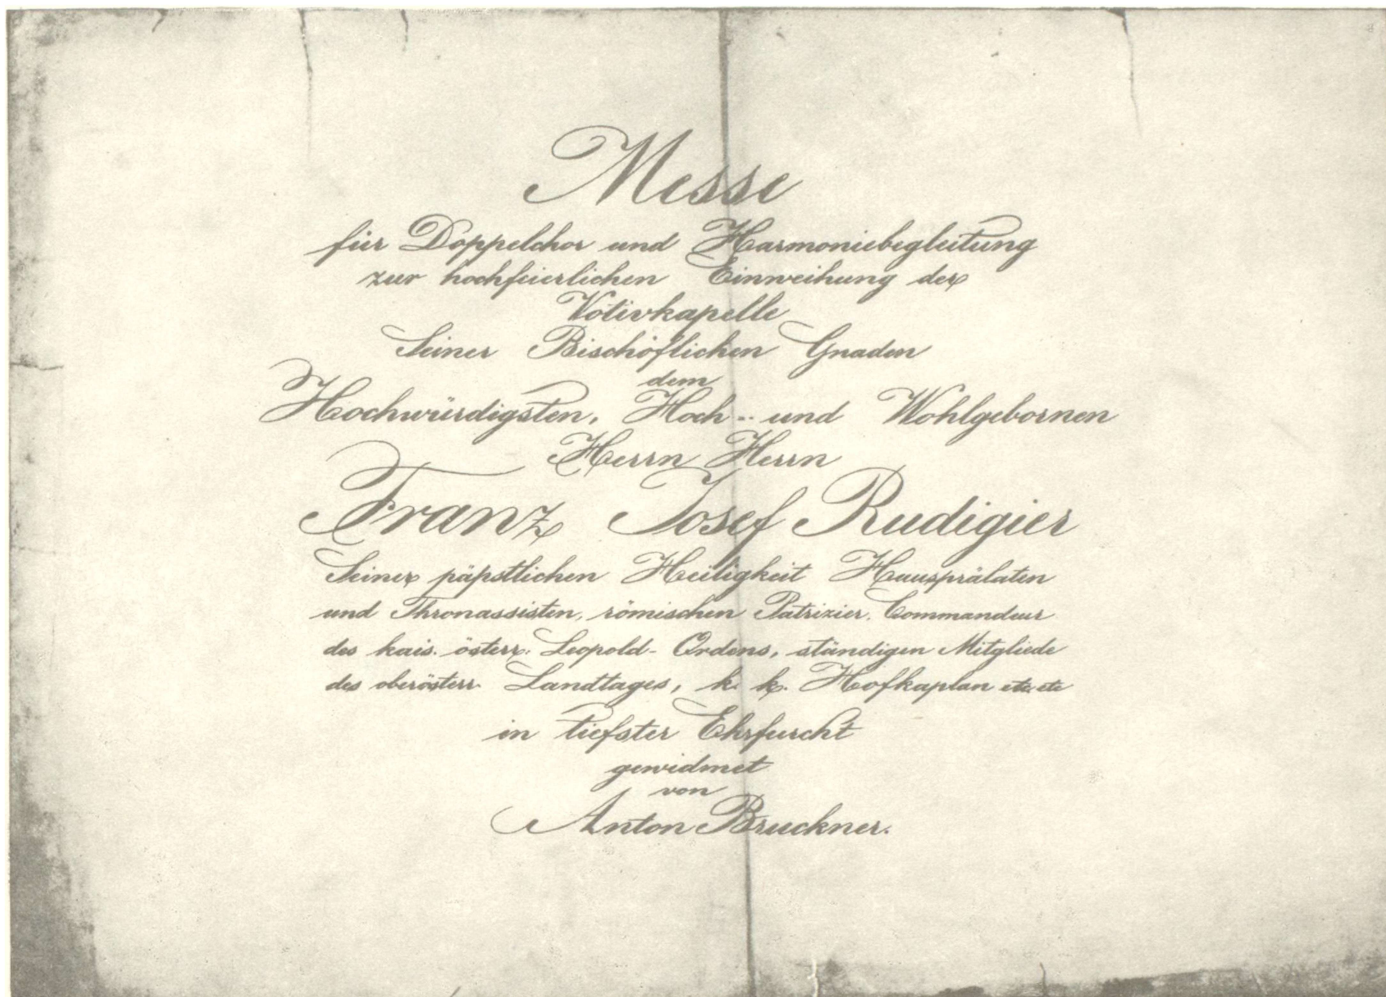 Messe
für Doppelchor und Harmoniebegleitung
zur hochfeierlichen Einweihung der
Votivkapelle
Seiner Bischöflichen Gnaden
dem
Hochwürdigsten, Hoch- und Wohlgebornen
Herrn Herrn
Franz Josef Rudigier
Seiner päpstlichen Heiligkeit Hausprälaten
und Thronassisten, römischen Patrizier, Commandeur
des kais. österr. Leopold-Ordens, ständigen Mitgliede
des oberösterr. Landtages, k. k. Hofkaplan etc. etc
in tiefster Ehrfurcht
gewidmet
von
Anton Bruckner.